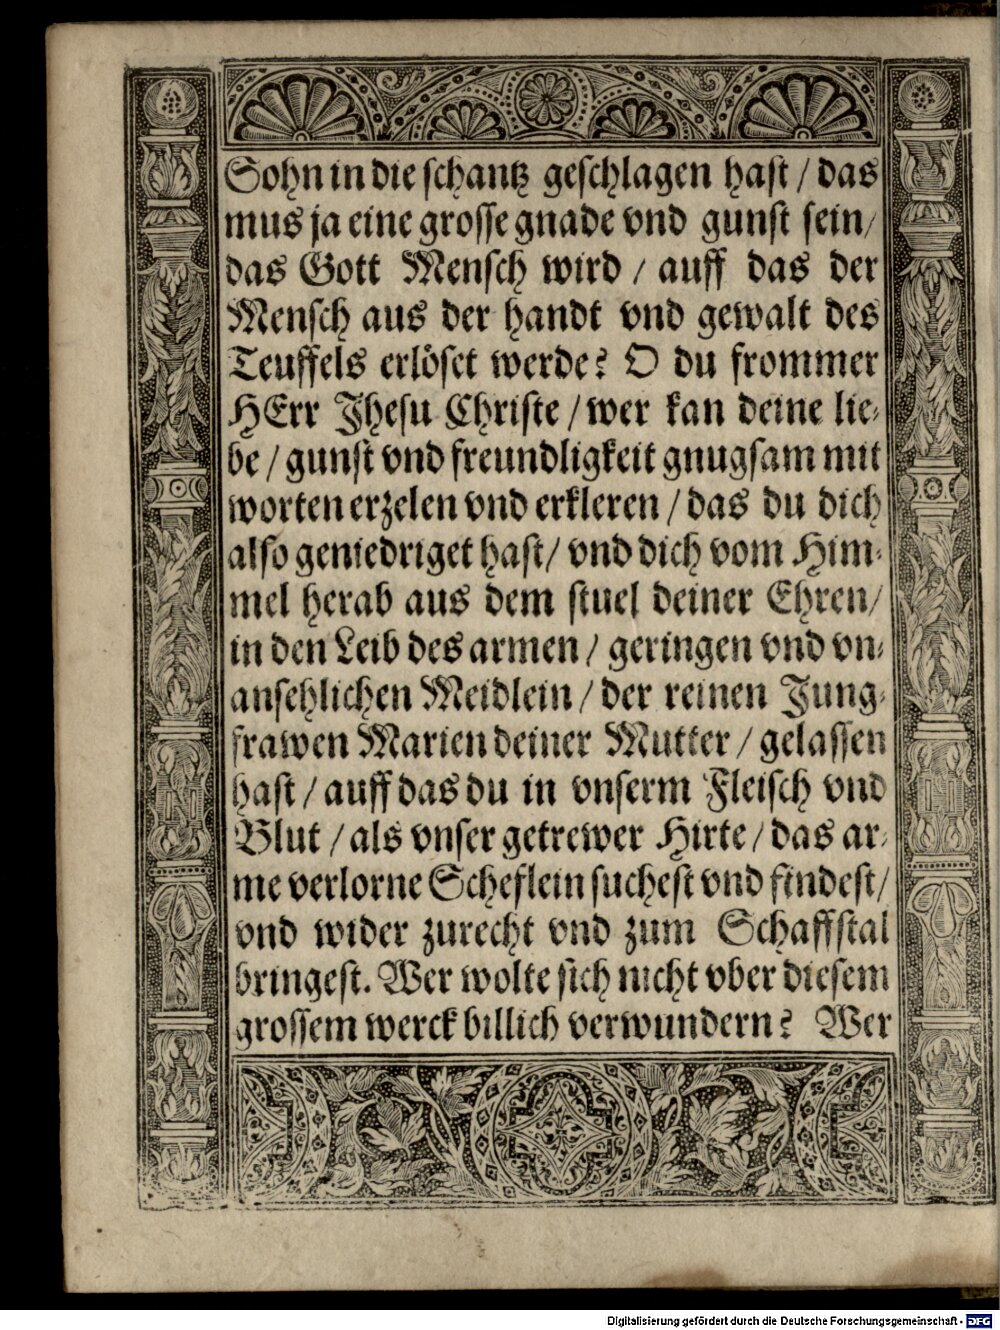 Sohn in die schantz geschlagen hast / das
mus ja eine grosse gnade vnd gunst sein /
das Gott Mensch wird / auff das der
Mensch aus der handt vnd gewalt des
Teuffels erlöset werde? O du frommer
HErr Jhesu Christe / wer kan deine lie-
be / gunst vnd freundligkeit gnugsam mit
worten erzelen vnd erkleren / das du dich
also geniedriget hast / vnd dich vom Him-
mel herab aus dem stuel deiner Ehren /
in den Leib des armen / geringen vnd vn-
ansehlichen Meidlein / der reinen Jung-
frawen Marien deiner Mutter / gelassen
hast / auff das du in vnserm Fleisch vnd
Blut / als vnser getrewer Hirte / das ar-
me verlorne Scheflein suchest vnd findest /
vnd wider zurecht vnd zum Schaffstal
bringest. Wer wolte sich nicht vber diesem
grossem werck billich verwundern? Wer
Digitalisierung gefördert durch die Deutsche Forschungsgemeinschaft - DFG